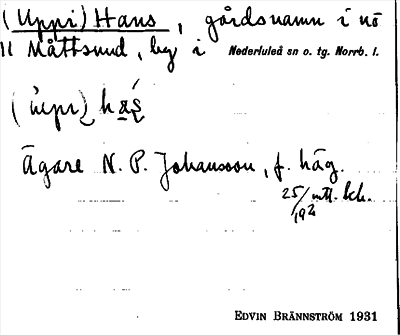 (Uppi) Hans, gårdsnamn i nö
11 Måttsund, by i Nederluleå sn o. tg. Norrb. l.
Ägare N. P. Johansson, f. häg.
25/
EDVIN BRÄNNSTRÖM 1931